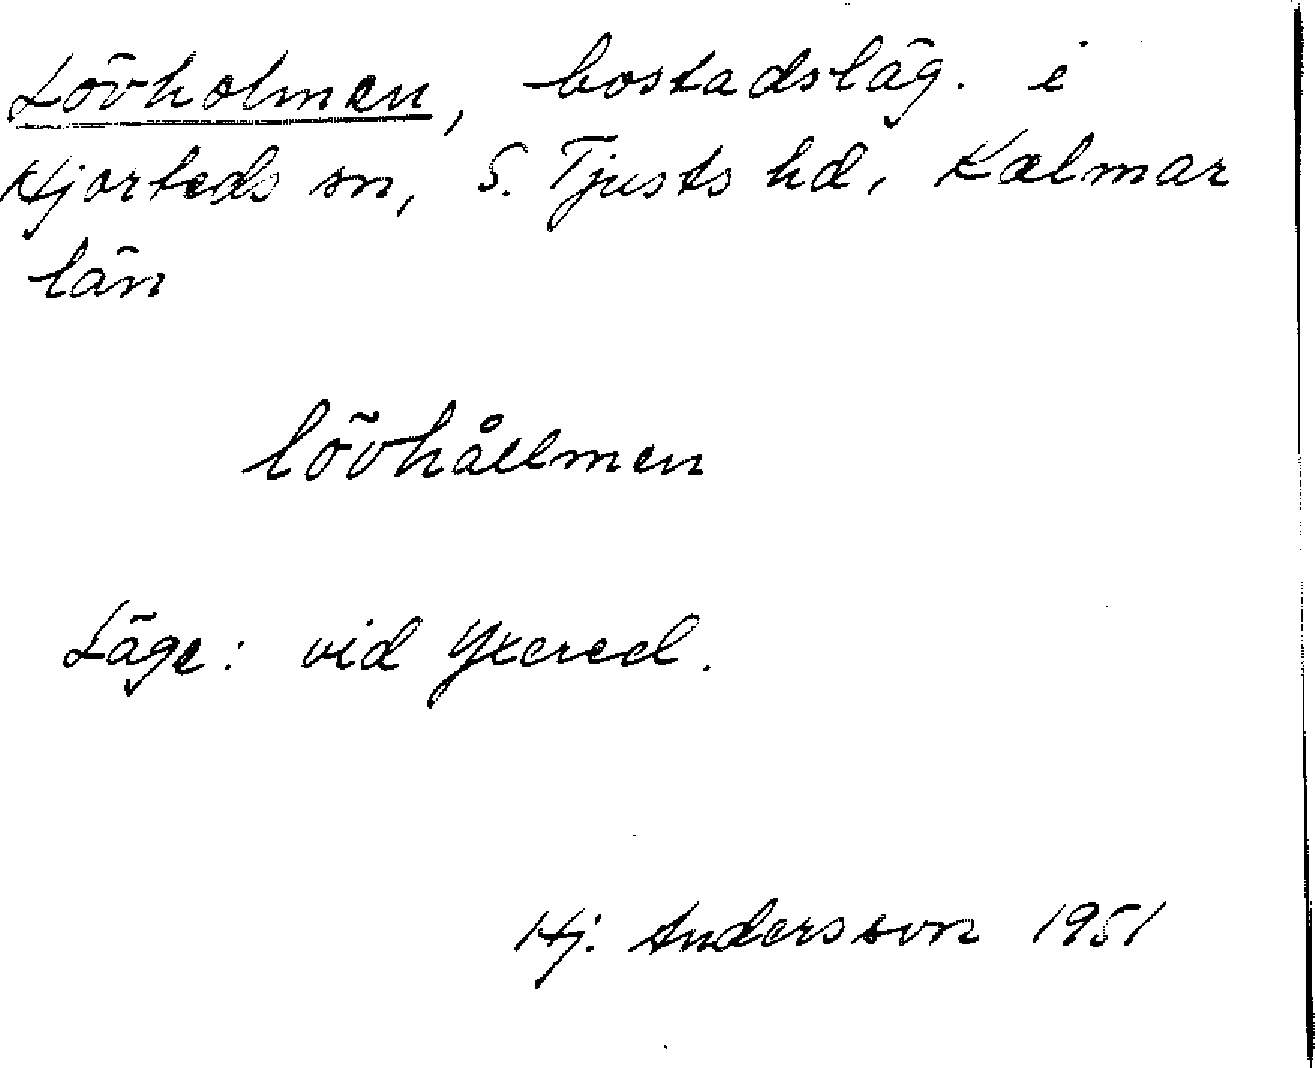 Lövholmen, bostadsläg. i
Hjorteds sn, S. Tjusts hd, Kalmar
län
lövhållmen
Läge: vid Yxered.
Hj. Andersson 1951